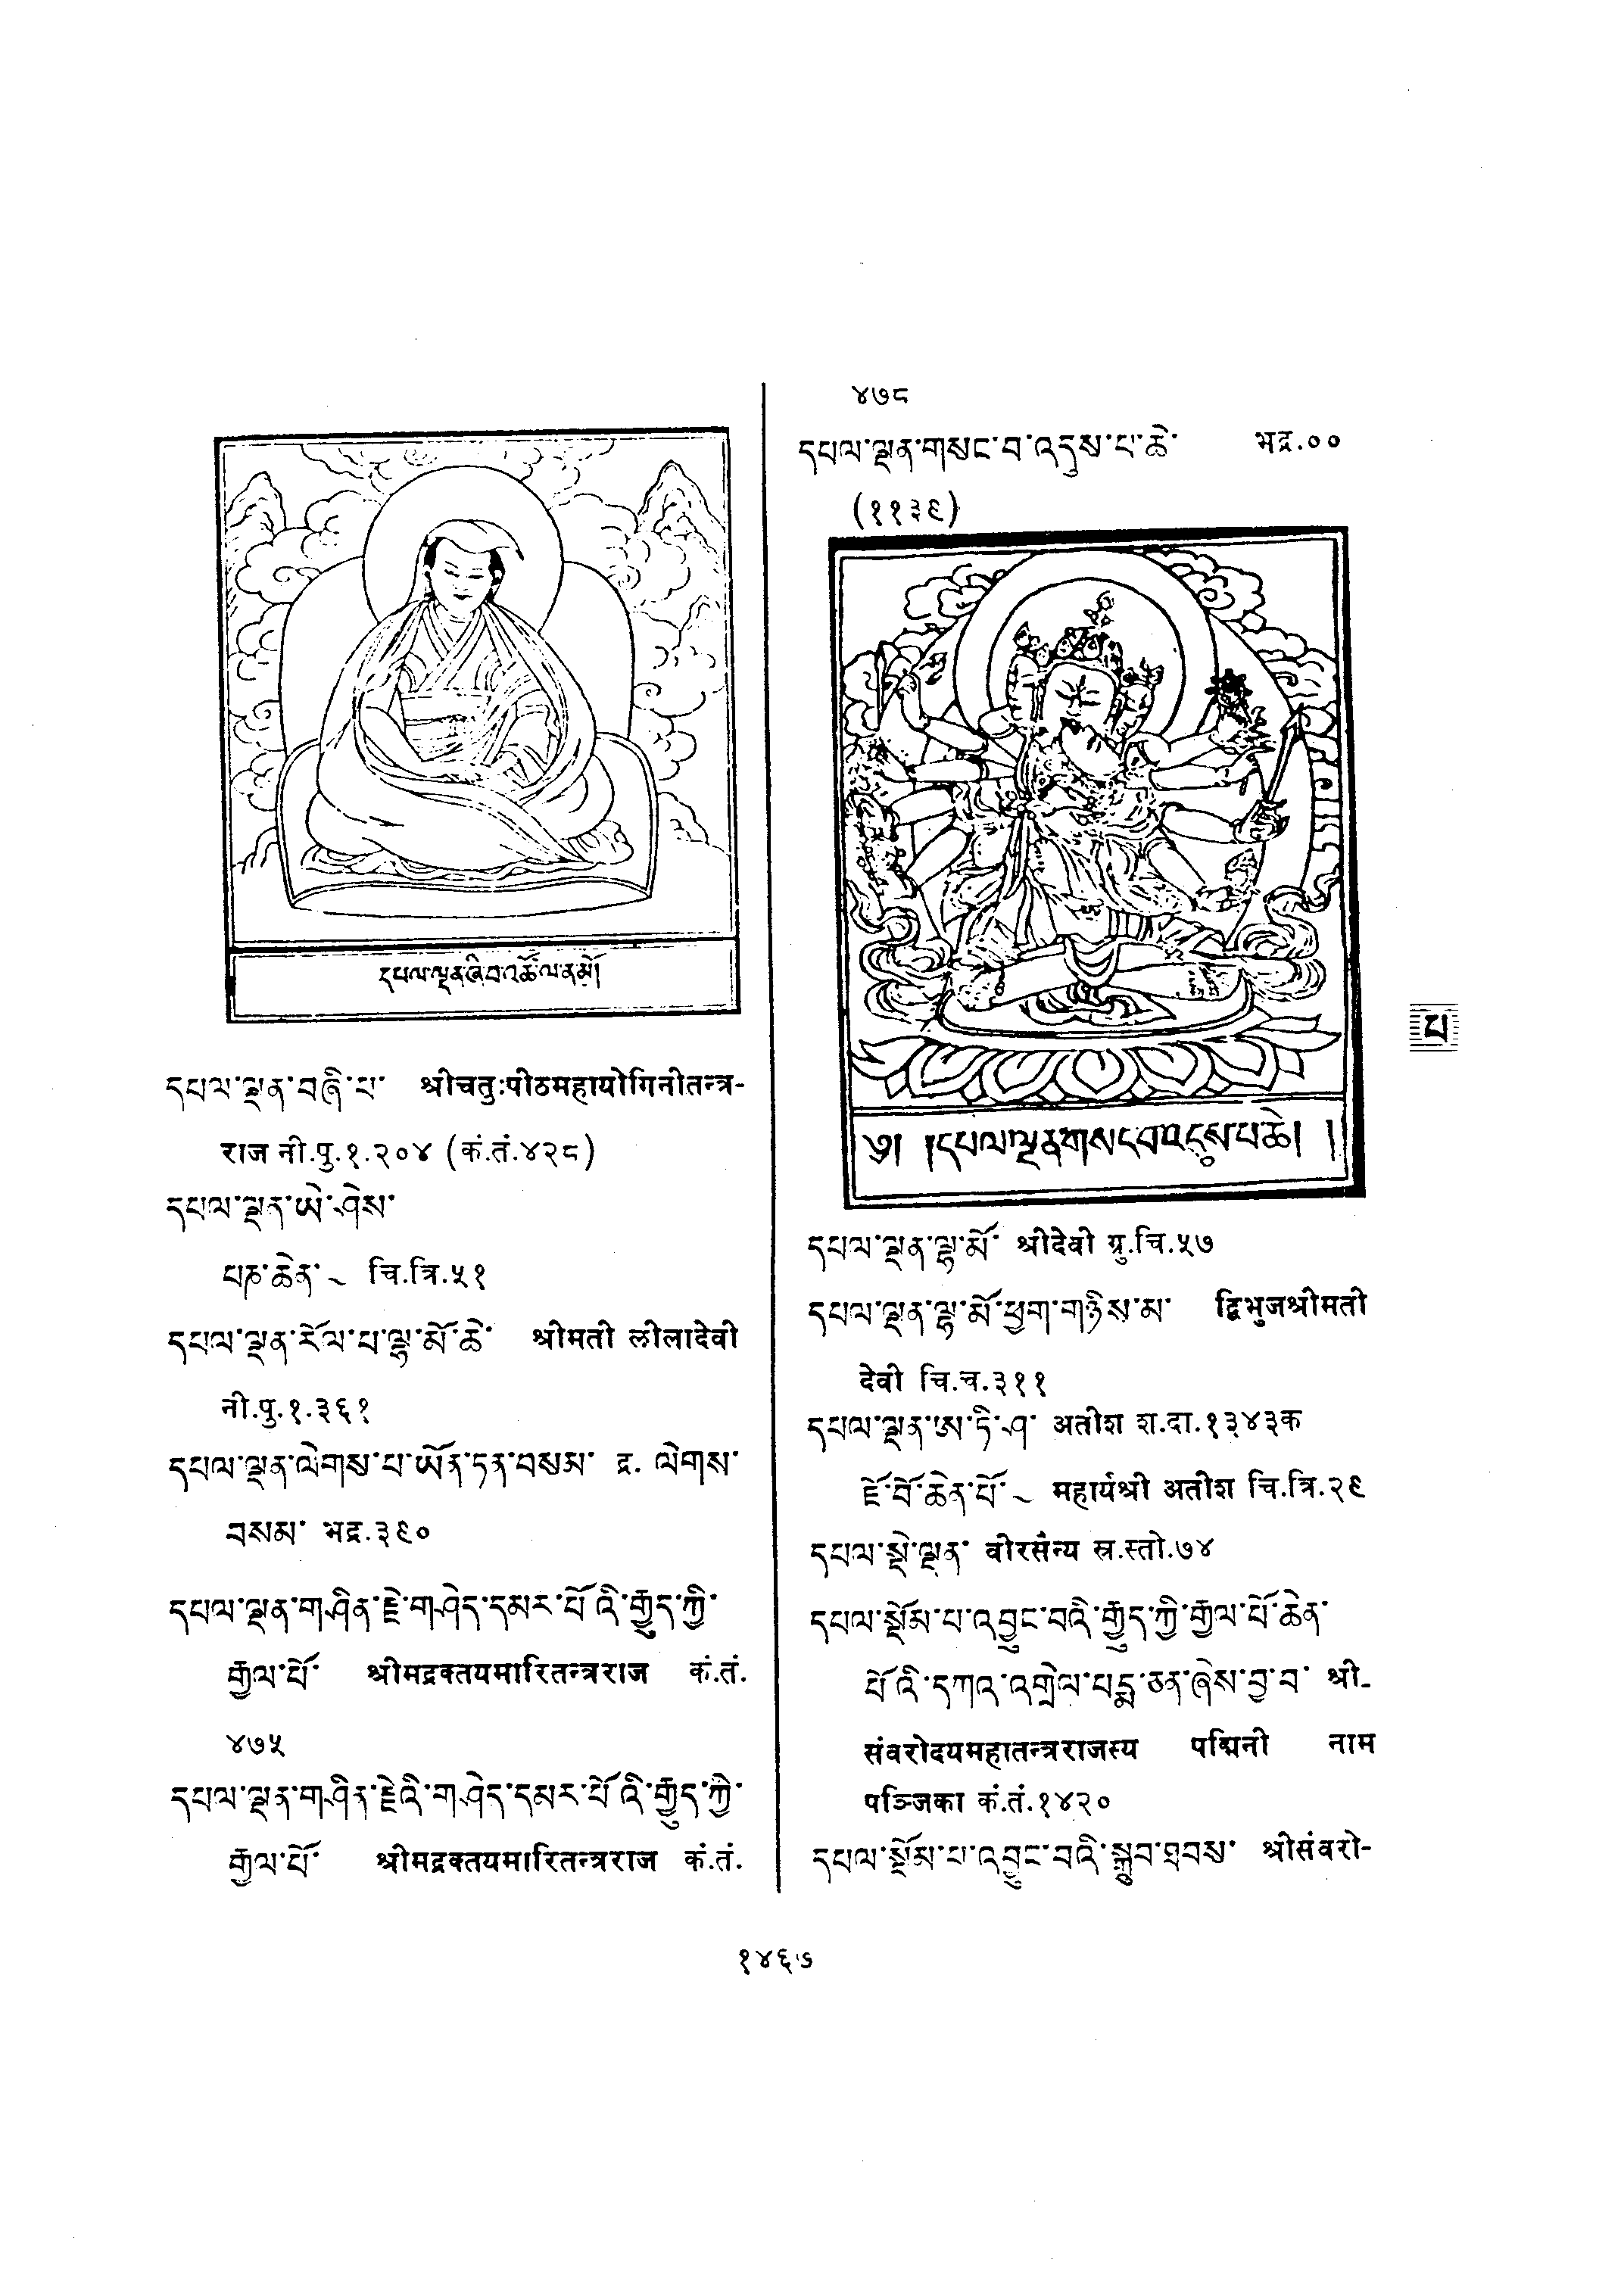 དཔལ་ལྡན་ཞི་བ་འཚོ་ལ་ན་མོ།
དཔལ་ལྡན་བཞི་པ་ श्रीचतुःपीठमहायोगिनीतन्त्र-
राज नी.पु.१.२०४ (कं.तं.४२८)
དཔལ་ལྡན་ཡེ་ཤེས་
པཎ་ཆེན་ ~ चि.त्रि.५१
དཔལ་ལྡན་རོལ་པ་ལྷ་མོ་ཆེ་ श्रीमती लीलादेवी
नी.पु.१.३६१
དཔལ་ལྡན་ལེགས་པ་ཡོན་ཏན་བསམ་ द्र. ལེགས་
བསམ་ भद्र.३९०
དཔལ་ལྡན་གཤིན་རྗེ་གཤེད་དམར་པོའི་རྒྱུད་ཀྱི་
རྒྱལ་པོ་ श्रीमद्रक्तयमारितन्त्रराज कं.तं.
४७५
དཔལ་ལྡན་གཤིན་རྗེའི་གཤེད་དམར་པོའི་རྒྱུད་ཀྱི་
རྒྱལ་པོ་ श्रीमद्रक्तयमारितन्त्रराज कं.तं.
४७८
དཔལ་ལྡན་གསང་བ་འདུས་པ་ཆེ་ भद्र.००
(११३९)
༄། །དཔལ་ལྡན་གསང་བ་འདུས་པ་ཆེ། །
དཔལ་ལྡན་ལྷ་མོ་ श्रीदेवी ग्रु.चि.५७
དཔལ་ལྡན་ལྷ་མོ་ཕྱག་གཉིས་མ་ द्विभुजश्रीमती
देवी चि.च.३११
དཔལ་ལྡན་ཨ་ཏི་ཤ་ अतीश श.दा.१३४३क
ཇོ་བོ་ཆེན་པོ་ ~ महार्यश्री अतीश चि.त्रि.२९
དཔལ་སྡེ་ལྡན་ वीरसैन्य स्र.स्तो.७४
དཔལ་སྡོམ་པ་འབྱུང་བའི་རྒྱུད་ཀྱི་རྒྱལ་པོ་ཆེན་
པོའི་དཀའ་འགྲེལ་པདྨ་ཅན་ཞེས་བྱ་བ་ श्री-
संवरोदयमहातन्त्रराजस्य पद्मिनी नाम
पञ्जिका कं.तं.१४२०
དཔལ་སྡོམ་པ་འབྱུང་བའི་སྒྲུབ་ཐབས་ श्रीसंवरो-
པ
१४६७